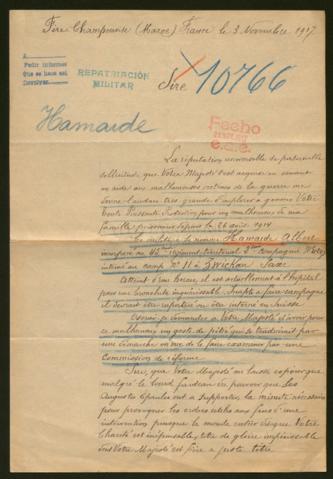 Fère Champenoise (Marne) France le 3 Novembre 1917
A
Pedir informes
Que se haga así
Devolver
REPATRIACIÓN
MILITAR
Sire
10766
Hamaide
Hecho
La réputation universelle de paternelle
sollicitude que Votre Majesté s'est acquise en venant
en aide aux malheureuses victimes de la guerre me
donne l'audace très grande d'implorer à genoux Votre
Haute Puissante pour un malheureux de ma
famille prisonnier depuis le 26 août 1914
Le militaire se nomme Hamaide Albert
au 45me régiment territorial, 3me Compagnie
interné au camp No II à Zwickau Saxe
Atteint d'un il est actuellement à l'hôpital
pour une bronchite Inapte à faire campagne
il devrait être rapatrié ou être interné en Suisse
demander à Votre Majesté d'avoir pour
ce malheureux un geste de pitié qui se traduirait par
une démarche en vue de le faire examiner par une
Commission de réforme
Sire, que Votre Majesté me laisse espérer que
malgré le lourd fardeau du pouvoir que les
Augustes épaules ont à supporter, la minute nécessaire
pour provoquer les ordres utiles aux fins d'une
intervention puisque le monde entier désigne Votre
Charité est inépuisable, titre de gloire impérissable
dont Votre Majesté est fière à juste titre